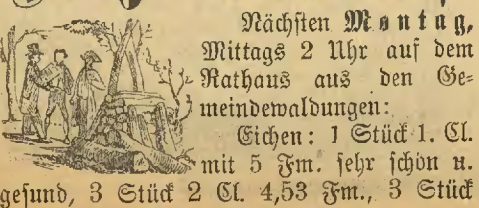 Nächsten Montag,
Mittags 2 Uhr auf dem
Rathaus aus den Ge-
meindewaldungen:
Eichen: 1 Stück 1. Cl.
mit 5 Fm. sehr schön u.
gesund, 3 Stück 2 Cl. 4,53 Fm., 3 Stück